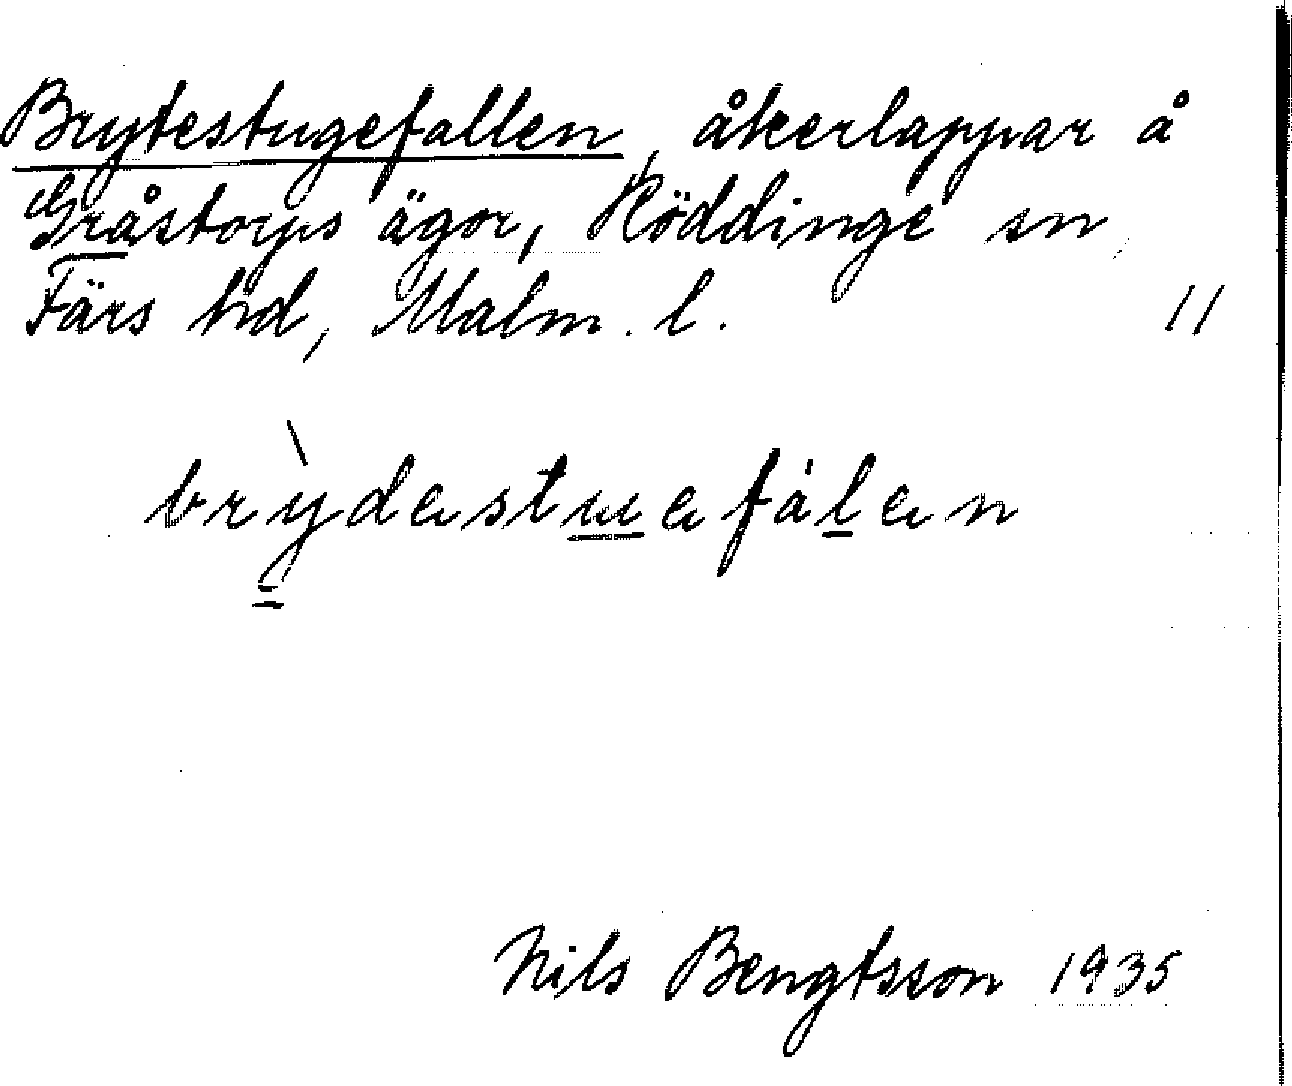 Brytestugefallen, åkerlappar å
Gråstorps ägor, Röddinge sn,
Färs hd, Malm. l. 11
Nils Bengtsson 1935